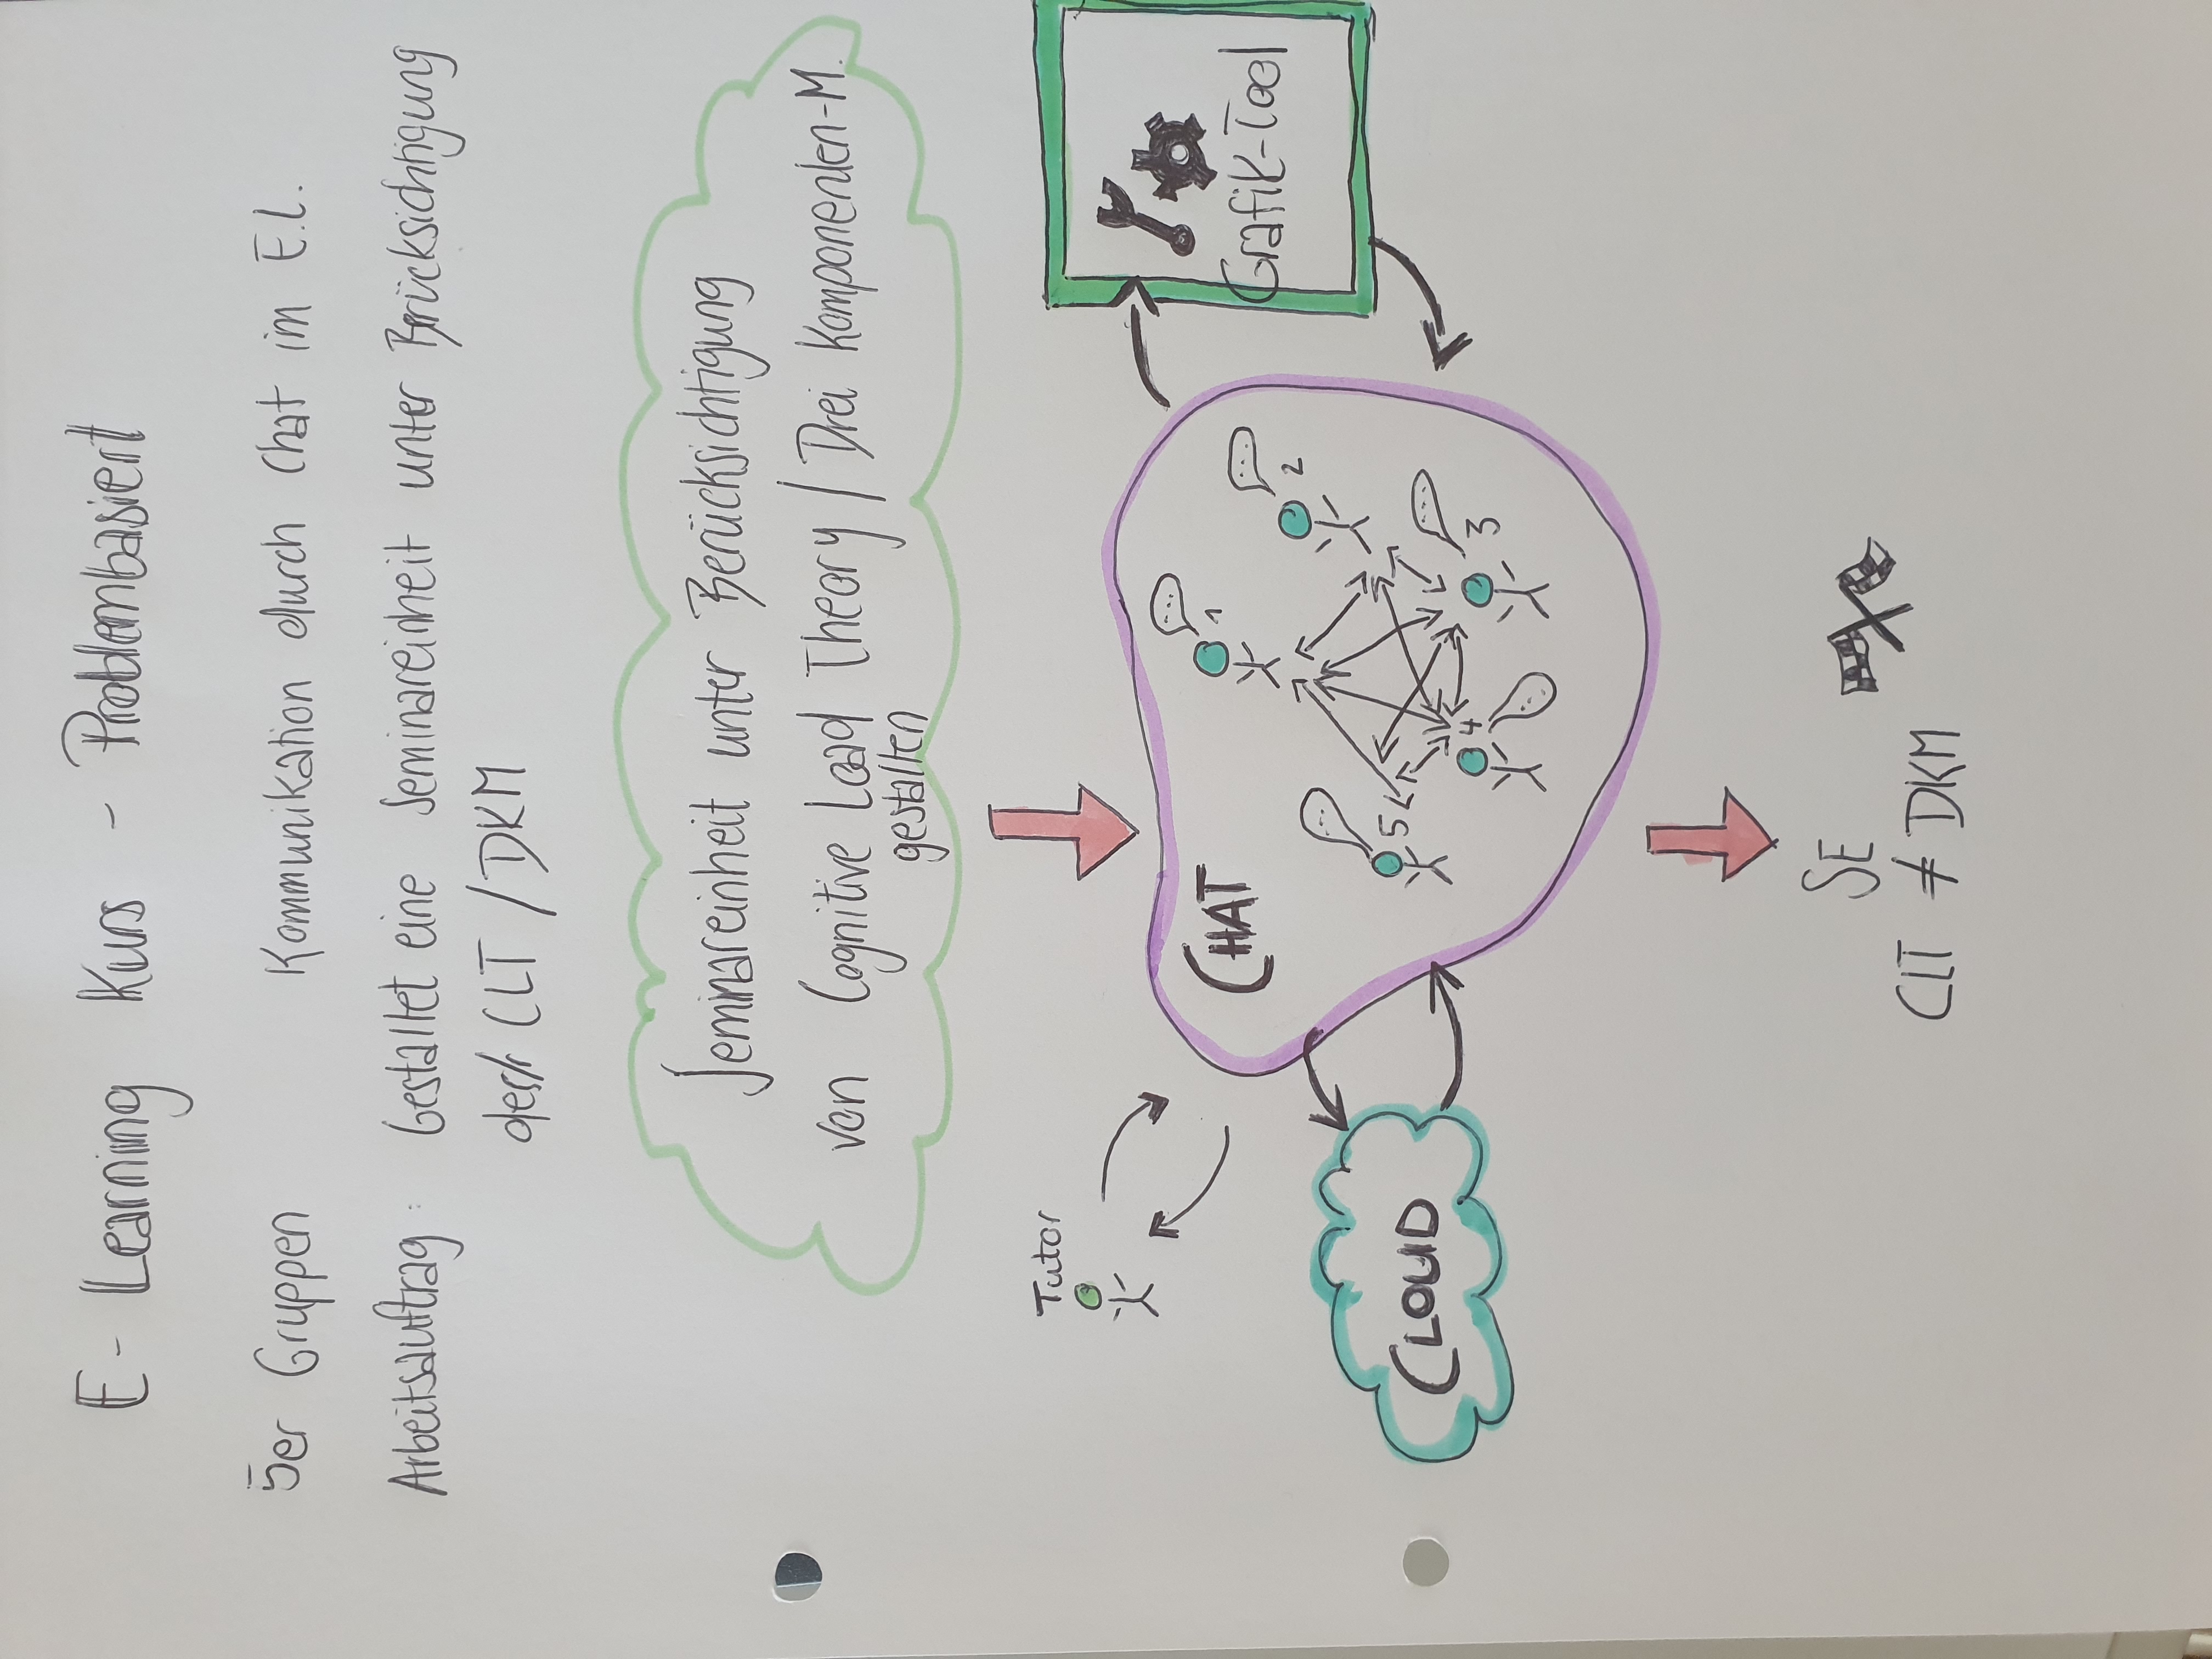 E-Learning Kurs - Problembasiert
5er Gruppen Kommunikation durch Chat im E.L.
Arbeitsauftrag: Gestaltet eine Seminareinheit unter Berücksichtigung
des/r CLT / DKM
Seminareinheit unter Berücksichtigung
von Cognitive Load Theory / Drei Komponenten-M.
gestalten
Tutor
CHAT
1
2
5
4
3
Grafik-Tool
CLOUD
SE
CLT ≠ DKM